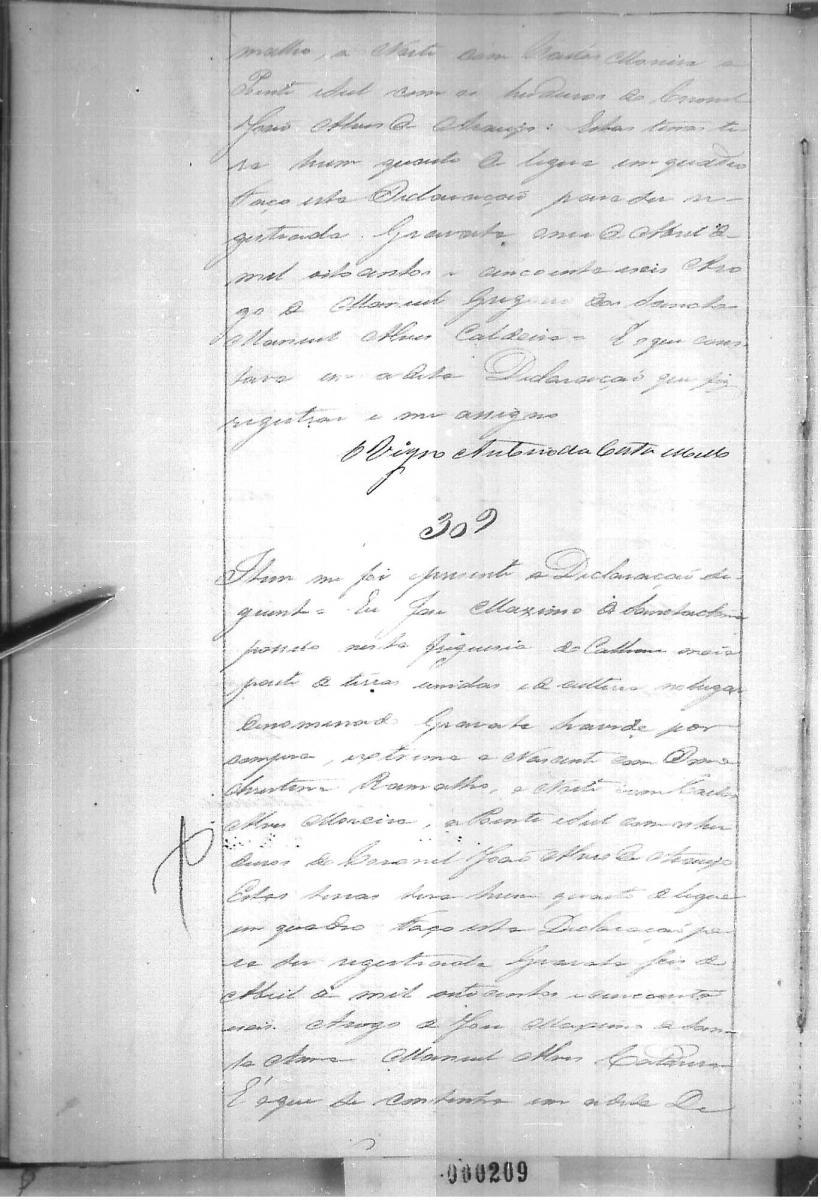 malho, a Norte com Moreira e
Poente e Sul com os herdeiros do Coronel
João Alves de Araujo: Estas terras te
ra hum quarto de legua em quadro
Faço esta Declaração para ser re-
gistrada. Gravata de Abril de
mil oito centos e cincoenta e seis Aro
go de Manuel dos Santos
Manuel Alves Caldeira = E o que cons
tava em a dita Declaração que fiz
registrar e me assigno
O Vigro Antonio da Costa Mello
309
Item me foi presente a Declaração se-
guinte = Eu José Maximo de Santa Anna
possuo nesta Freguesia de huma
parte de terras unidas e de cultura no lugar
denominado Gravata havida por
compra, extrema a Nascente com Dona
Ramalho, a Norte com
Alves Moreira, a Poente e Sul com os her
deiros do Coronel João Alves de Araujo
Estas terras tera hum quarto de legua
em quadro Faço esta Declaração pa
ra ser registrada Gravata seis de
Abril de mil oito centos e cincoenta
e seis. Arogo de José Maximo de San
ta Anna Manuel Alves
E o que se continha em a dita De
000209